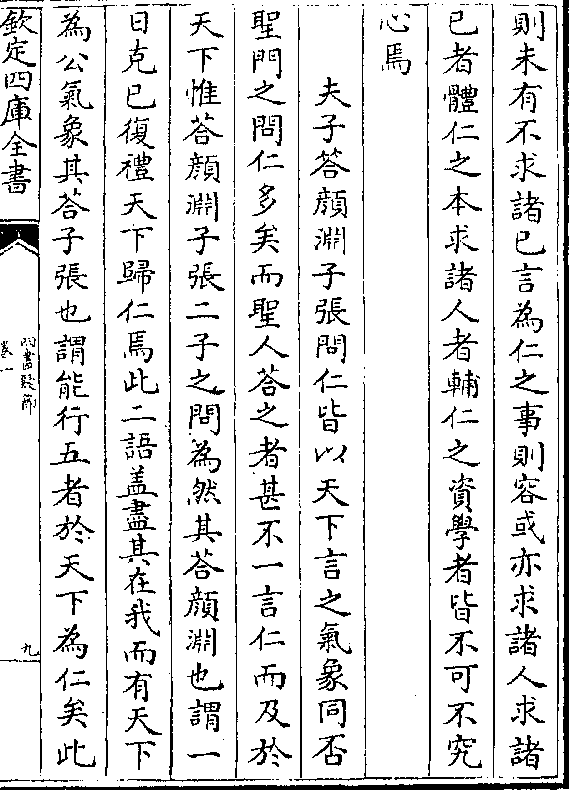 則未有不求諸已言為仁之事則容或亦求諸人求諸
已者體仁之本求諸人者輔仁之資學者皆不可不究
心焉
夫子答顔淵子張問仁皆以天下言之氣象同否
聖門之問仁多矣而聖人荅之者甚不一言仁而及於
天下惟荅顔淵子張二子之問為然其荅顔淵也謂一
日克已復禮天下歸仁焉此二語盖盡其在我而有天下
為公氣象其荅子張也謂能行五者於天下為仁矣此
欽定四庫全書
四書疑節
卷一
九